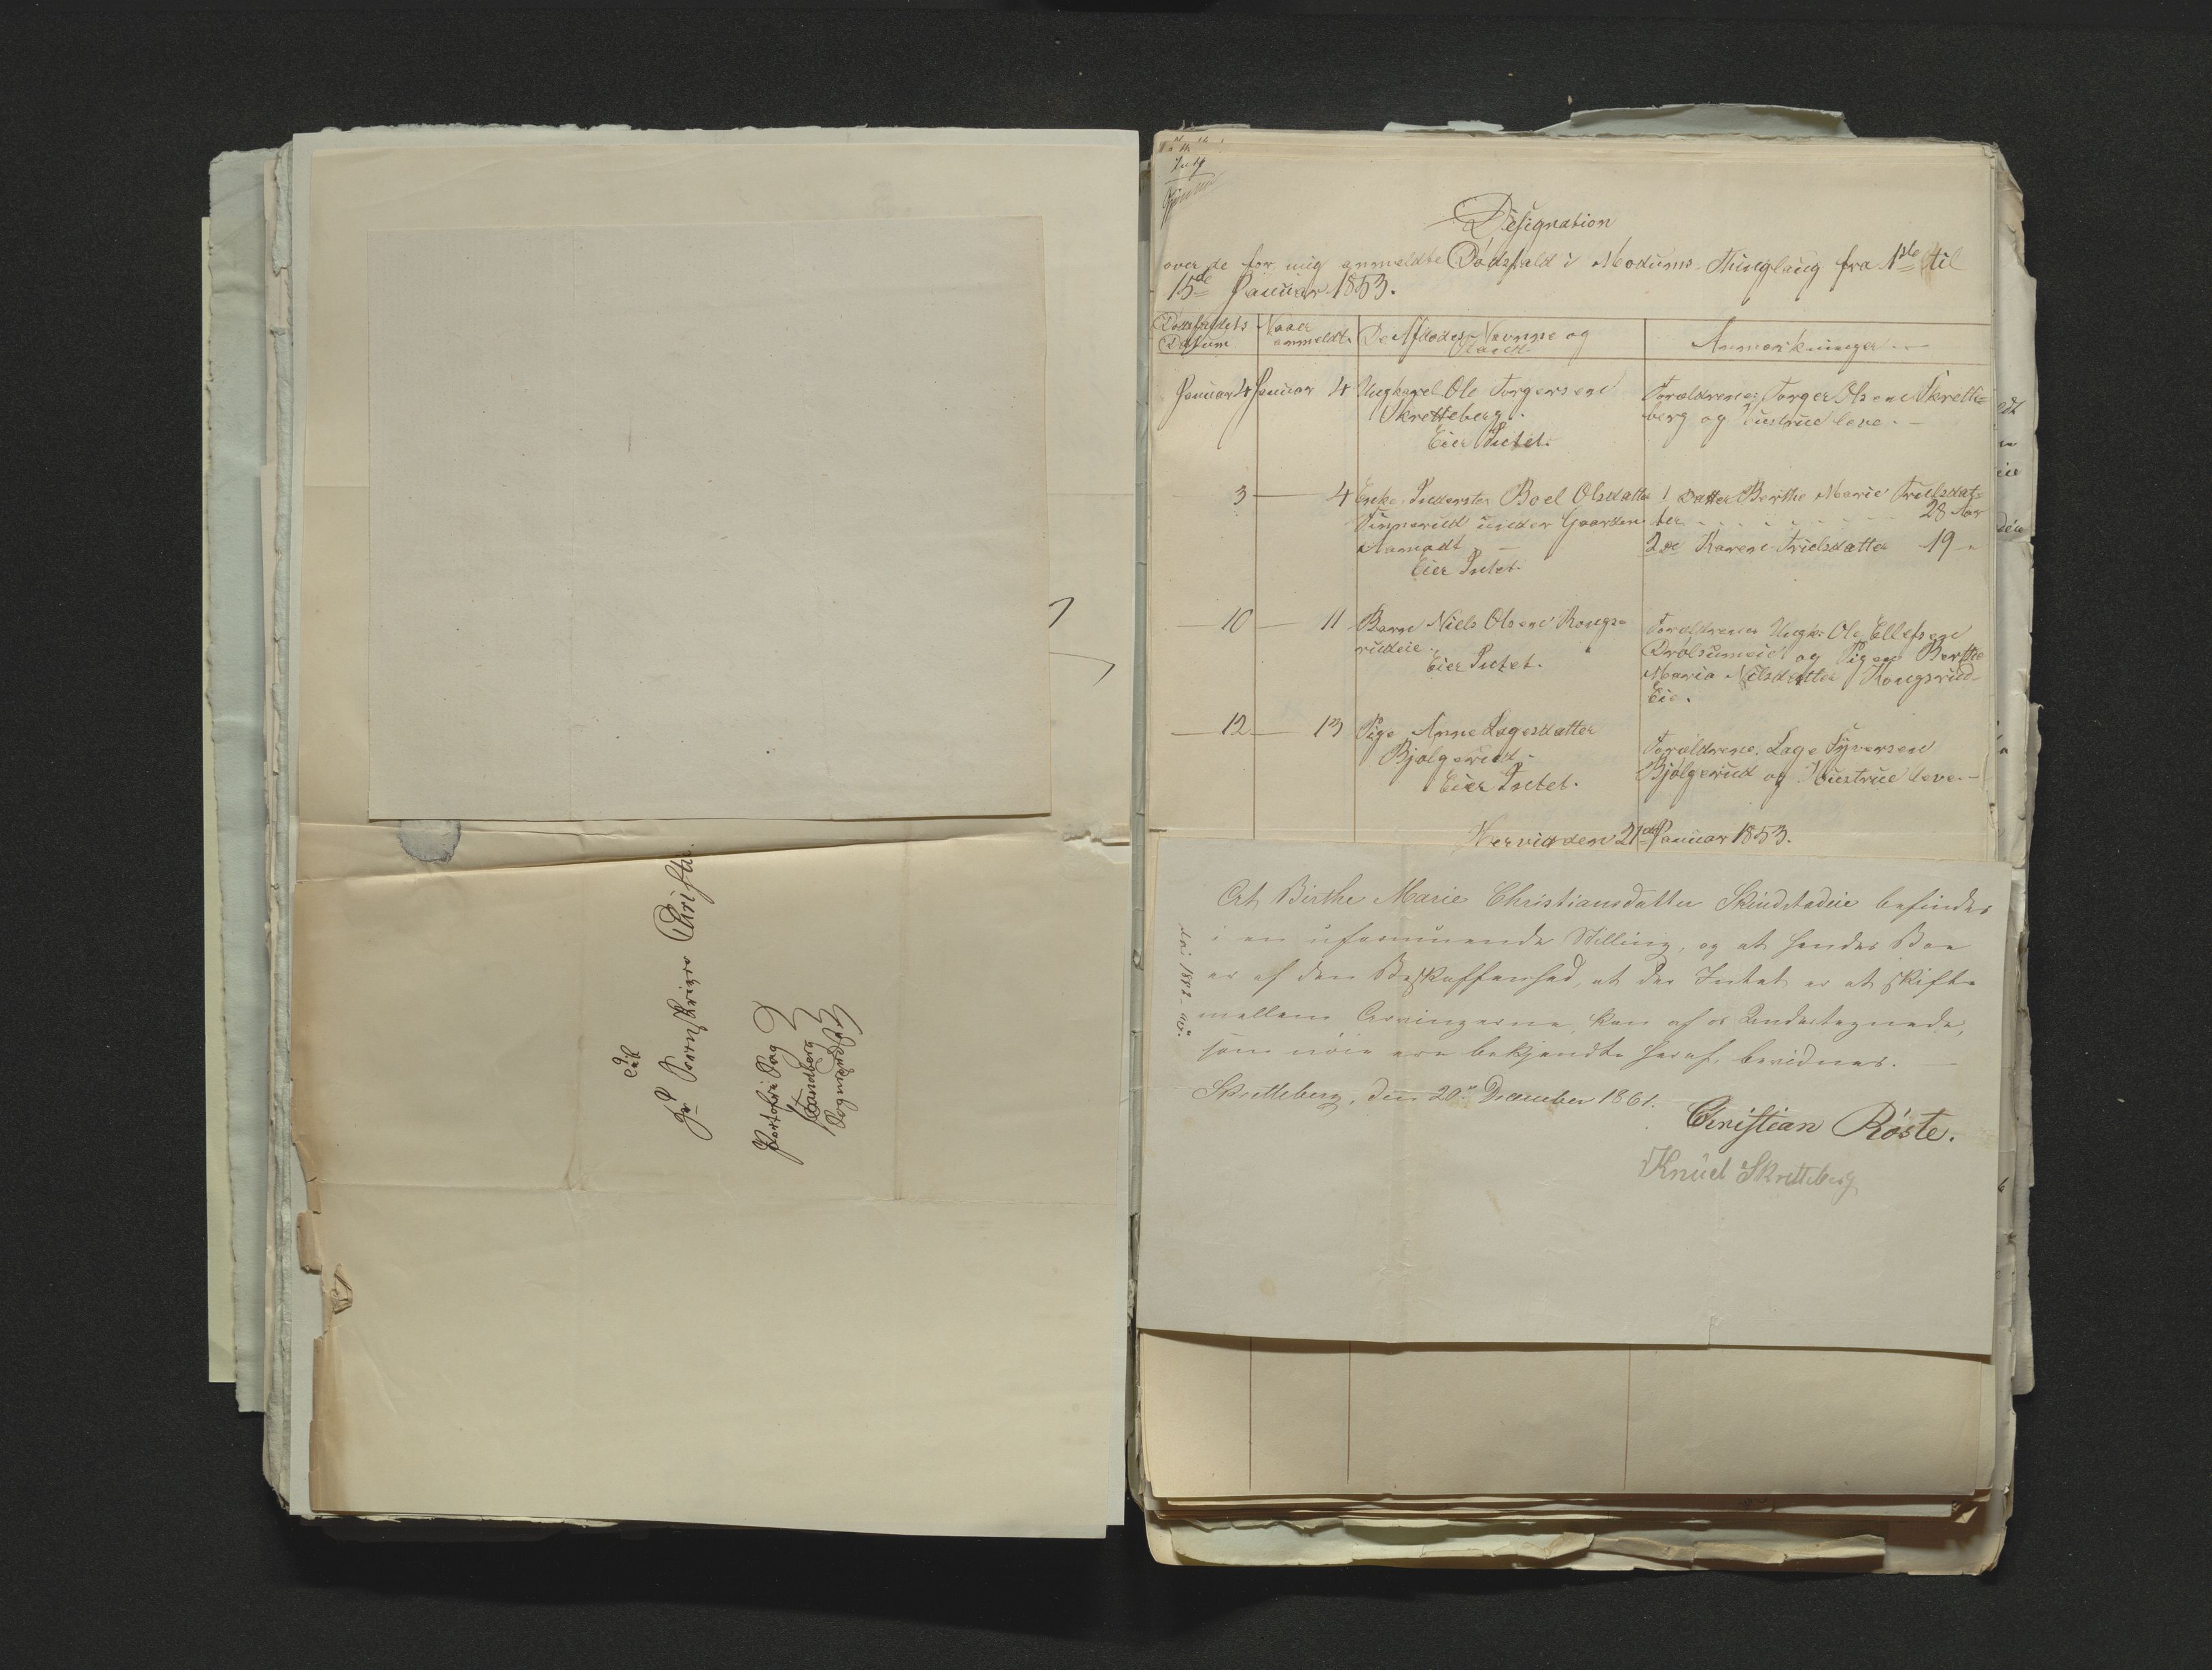 Til
Hr Sorenskriver Christie.
Portofri Sag
Strandberg
Sogneprest
Designation
over de for mig anmeldte Dødsfald i Modums Thinglaug fra 1ste til
15de Januar 1853.
Dødsfaldets Datum
Naar anmeldt
De Afdødes Navne og Stand
Anmærkninger
Januar 4 Januar 4 Ungkarl Ole Torgersen
Skretteberg.
Eier Intet.
Forældrene: Torger Olsen Skrette=
berg og Hustrue leve. -
3 — 4 Enke Inderster Boel Olsdatter
Finnerud under Gaarden
Aamodt
Eier Intet.
1 Datter Berthe Marie Trulsdat=
ter 28 Aar
2 de Karen Trulsdatter 19 "
— 10 — 11 Barn Niels Olsen Kongs=
rudeie.
Eier Intet.
Forældrene Ungk: Ole Ellefsen
Drolsumeie og Pigen Berthe
Maria Nilsdatter Kongsrud=
Eie.
— 12 — 13 Pige Anne Lagesdatter
Bjølgerud.
Eier Intet.
Forældrene: Lage Syversen
Bjølgerud og Hustrue leve. -
den 21de Januar 1853.
At Birthe Marie Christiansdatter Skindstadeie befinder
i en uformuende Stilling, og at hendes Boe
er af den Beskaffenhed, at der Intet er at skifte
mellem Arvingerne, kan af os Undertegnede,
som nøie ere bekjendte heraf, bevidnes. —
Skretteberg, den 20de December 1861.
Christian Røste.
Knud Skretteberg